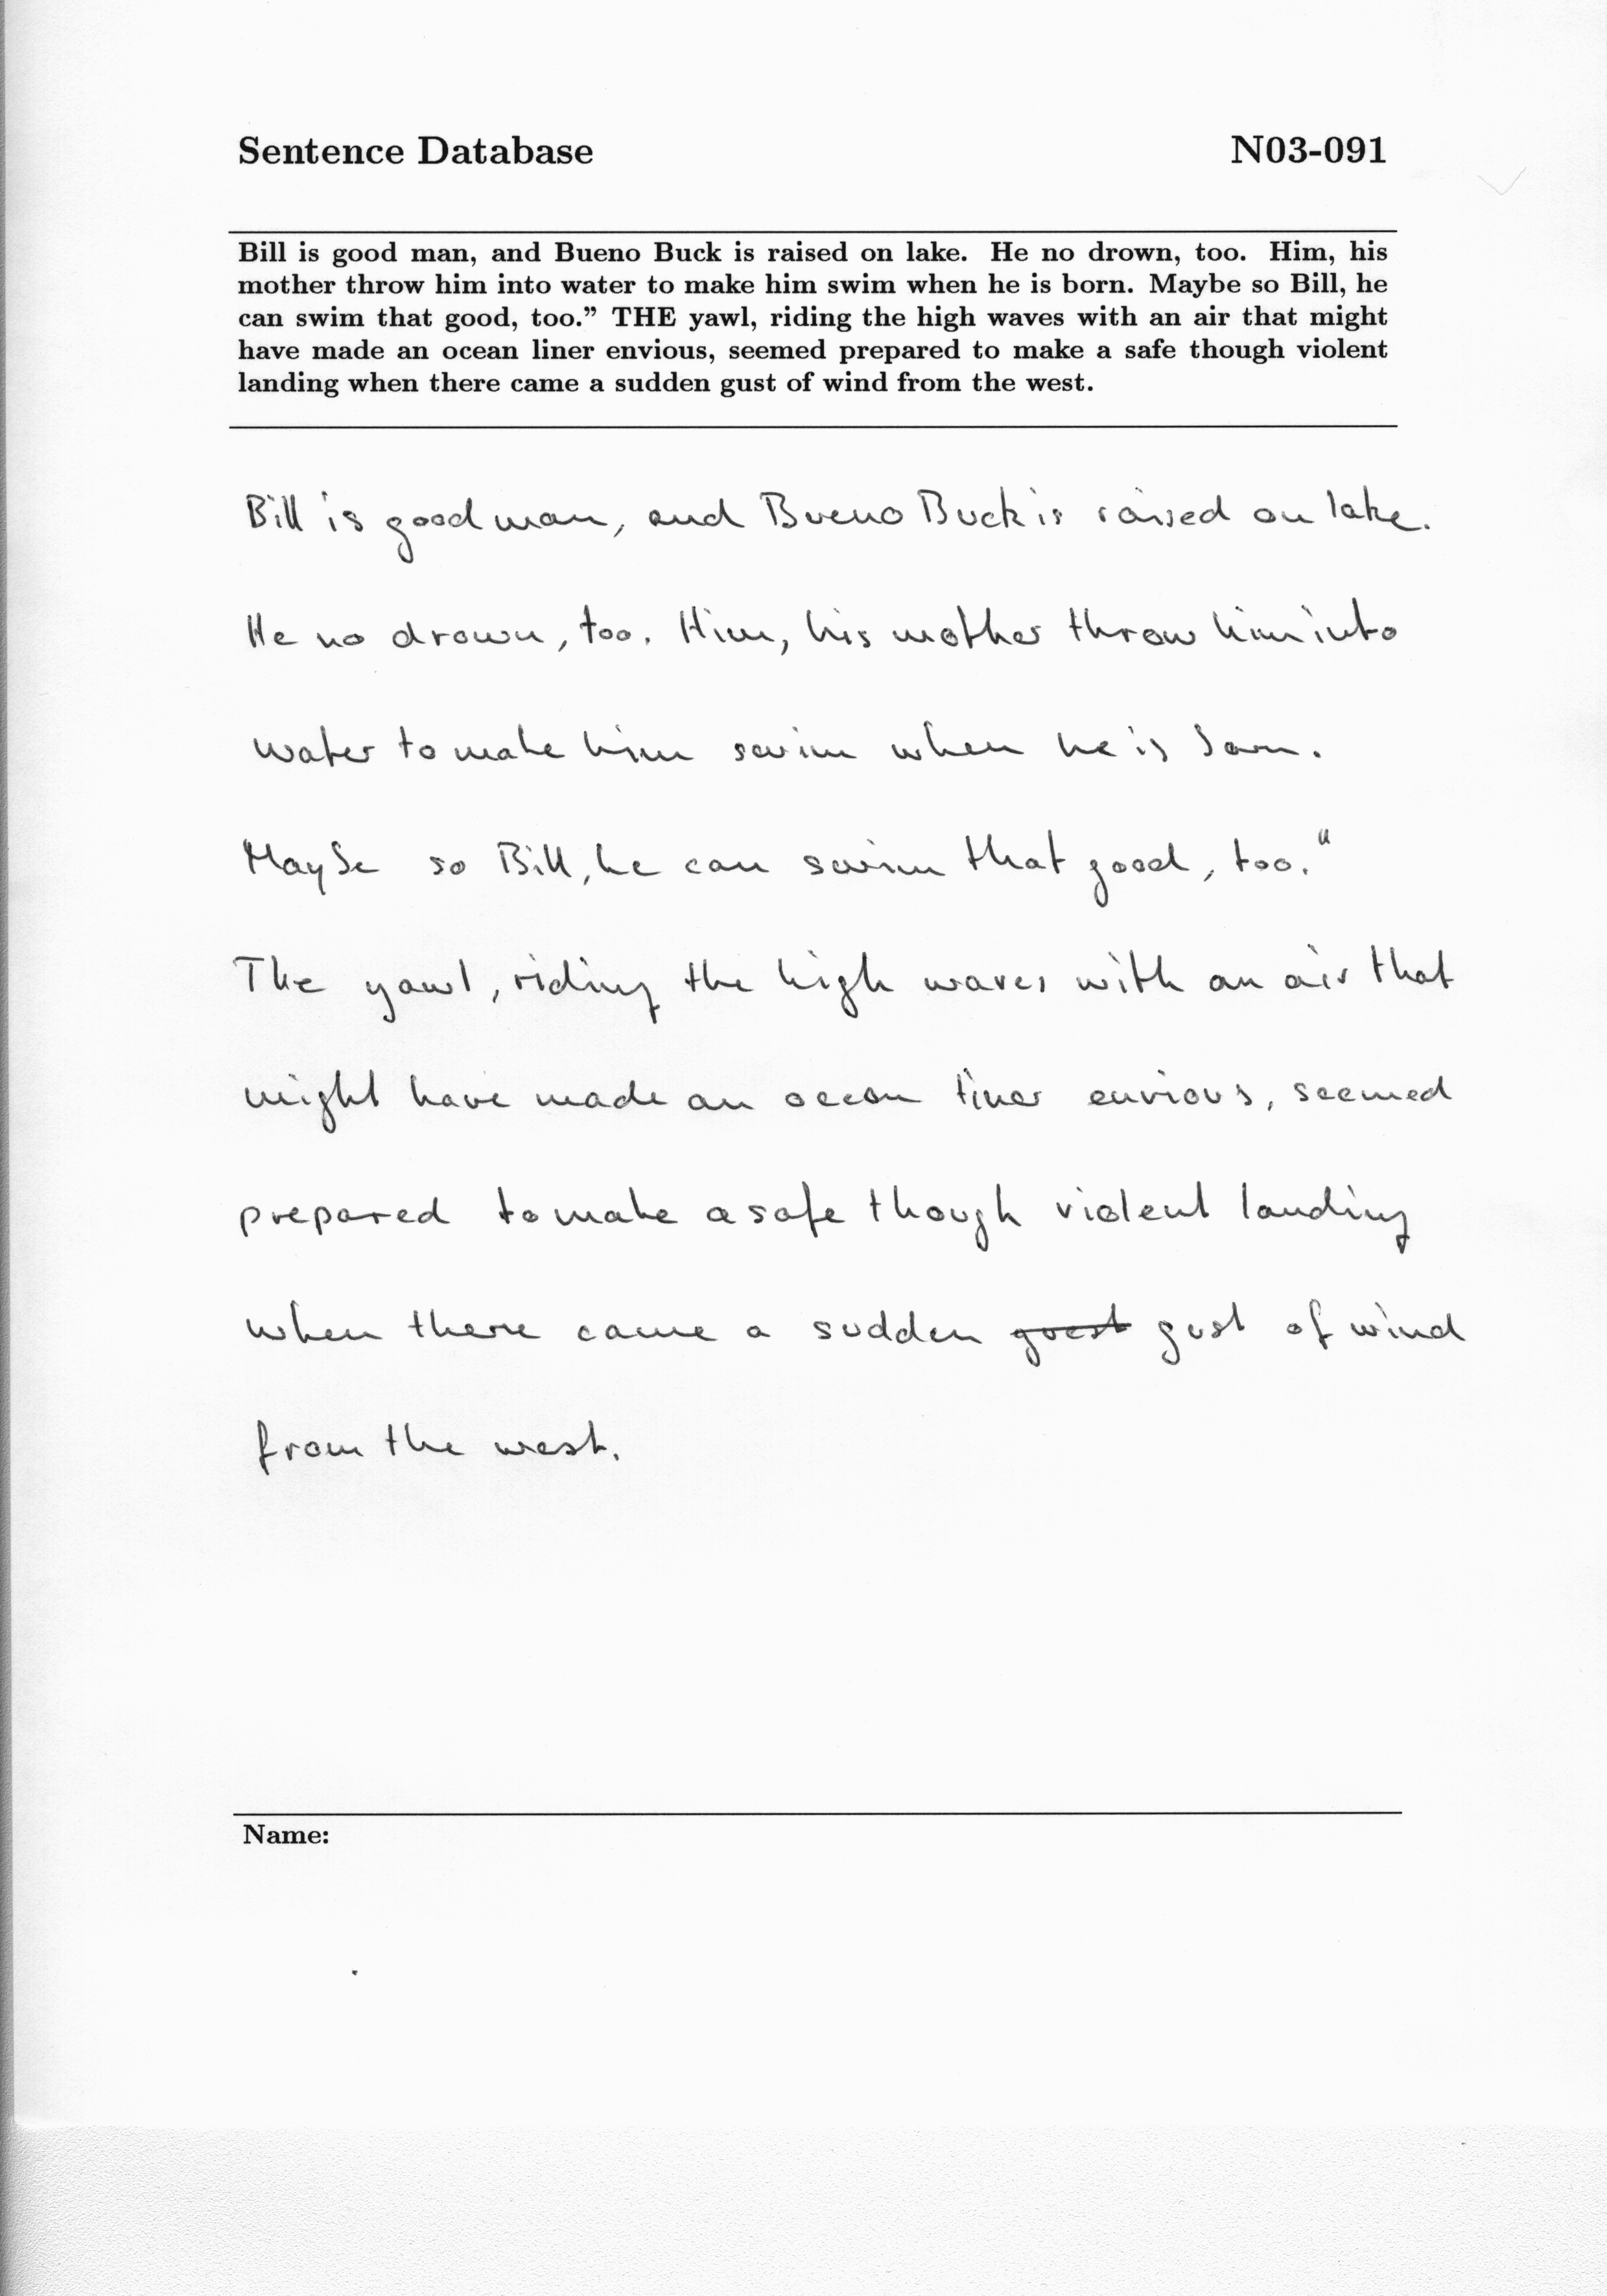 Sentence Database N03-091
Bill is good man, and Bueno Buck is raised on lake. He no drown, too. Him, his
mother throw him into water to make him swim when he is born. Maybe so Bill, he
can swim that good, too.” THE yawl, riding the high waves with an air that might
have made an ocean liner envious, seemed prepared to make a safe though violent
landing when there came a sudden gust of wind from the west.
Bill is good man, and Bueno Buck is raised on lake.
He no drown, too. Him, his mother throw him into
water to make him swim when he is born.
Maybe so Bill, he can swim that good, too."
The yawl, riding the high waves with an air that
might have made an ocean liner envious, seemed
prepared to make a safe though violent landing
when there came a sudden gust of wind
from the west.
Name: